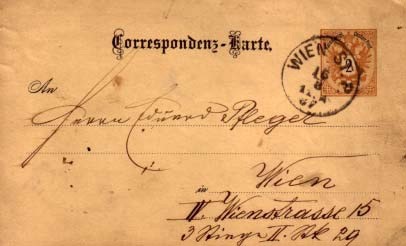 Correspondenz-Karte.
WIEN
An
Herrn Eduard Pfleger
Wien
in
Wienstrasse 15
3 Stiege II. Stk 29